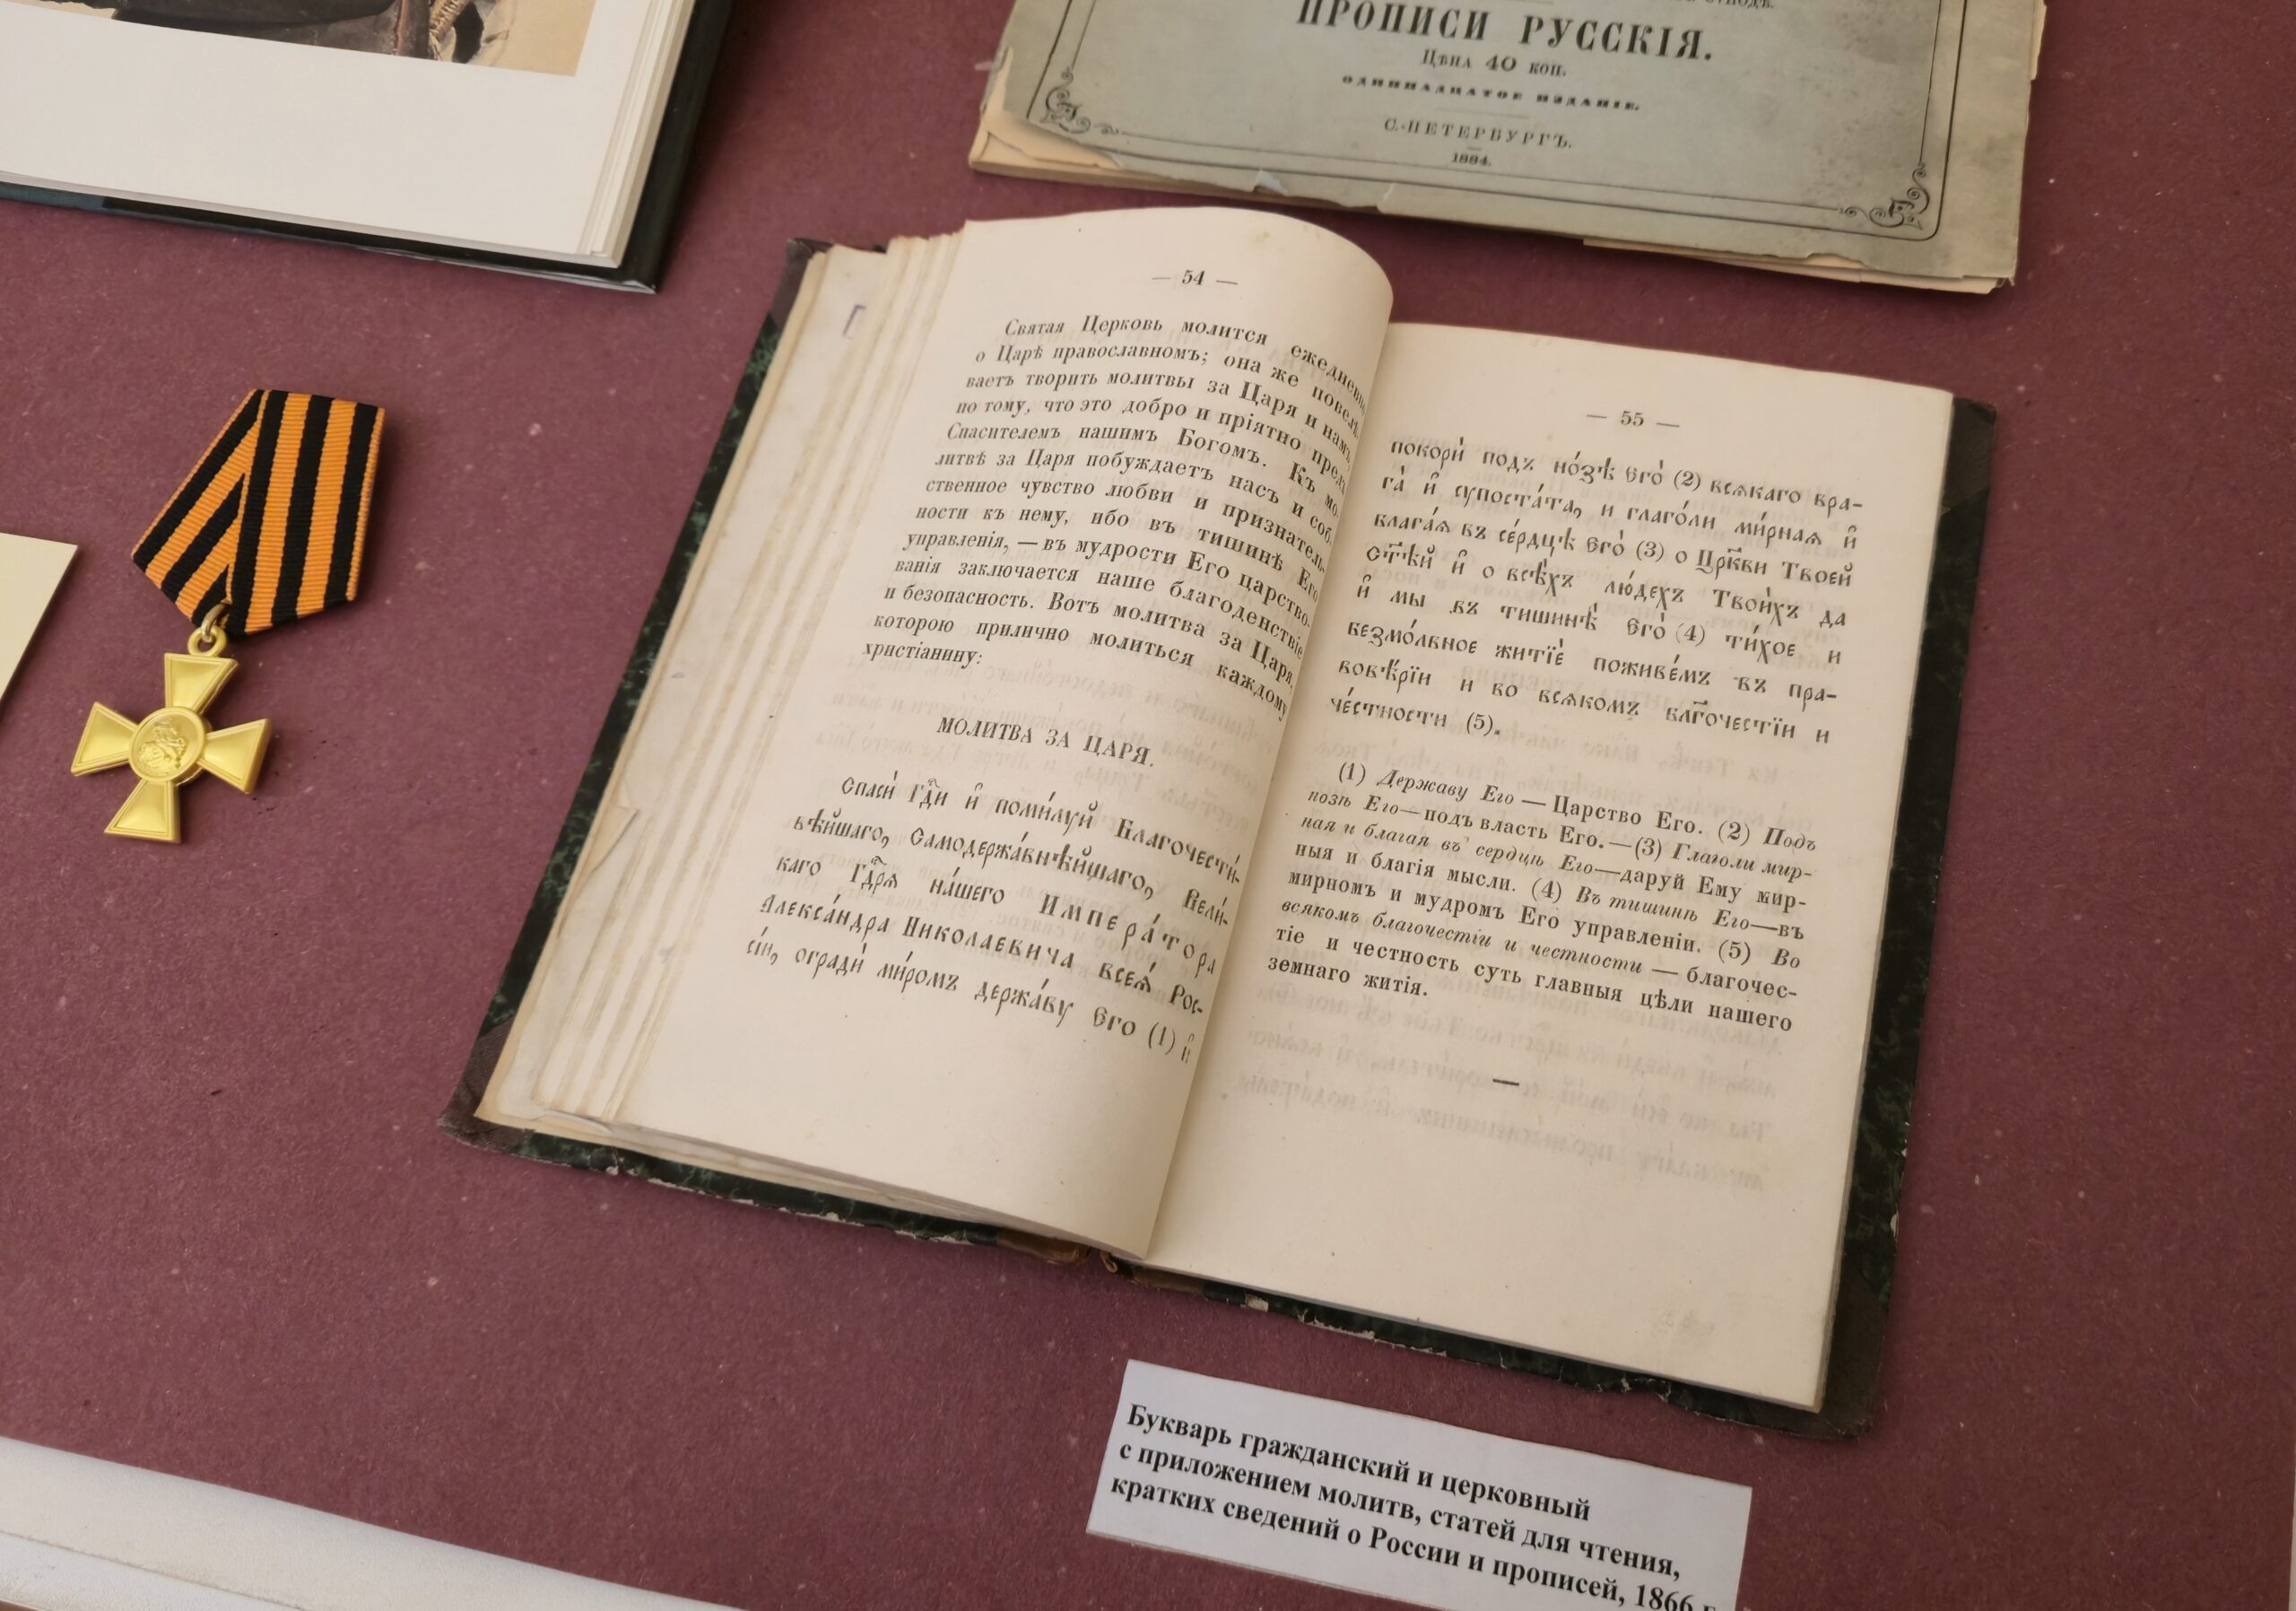 ПРОПИСИ РУССКІЯ.
Цѣна 40 коп.
ОДИННАДЦАТОЕ ИЗДАНІЕ.
С.-ПЕТЕРБУРГЪ.
1884.
— 54 —
Святая Церковь молится ежедневно
о Царѣ православномъ; она же повелѣ-
ваетъ творить молитвы за Царя и намъ,
по тому, что это добро и пріятно предъ
Спасителемъ нашимъ Богомъ. Къ мо-
литвѣ за Царя побуждаетъ насъ и соб-
ственное чувство любви и признатель-
ности къ нему, ибо въ тишинѣ Его
управленія, — въ мудрости Его царство-
ванія заключается наше благоденствіе
и безопасность. Вотъ молитва за Царя,
которою прилично молиться каждому
христіанину:
МОЛИТВА ЗА ЦАРЯ.
Спаси́ Гд҇и и҆ поми́луй Благочести́-
вѣйшаго, Самодержа́внѣйшаго, Вели́-
каго Гд҇рѧ на́шего Импера́тора
Алекса́ндра Николаевича всеѧ́ Рос-
сі́и, огради́ ми́ромъ держа́ву Его (1) и҆
— 55 —
покорѝ подъ но́зѣ Его̀ (2) всѧкаго вра-
га̀ и҆ супоста́та, и глаго́ли ми́рнаѧ и҆
блага́ѧ въ се́рдцѣ Его̀ (3) о Цр҃кви Твоей
ст҃ѣй и҆ о всѣ́хъ лю́дехъ Твои́хъ да
и҆ мы въ тишинѣ̀ Его̀ (4) ти́хое и
безмо́лвное житїѐ поживе́мъ въ пра-
вовѣ́рїи и во всѧкомъ бл҃гочестїи и
че́стности (5).
(1) Державу Его — Царство Его. (2) Подъ
нозѣ Его — подъ власть Его. — (3) Глаголи мир-
ная и благая въ сердцѣ Его — даруй Ему мир-
ныя и благія мысли. (4) Въ тишинѣ Его — въ
мирномъ и мудромъ Его управленіи. (5) Во
всякомъ благочестіи и честности — благочес-
тіе и честность суть главныя цѣли нашего
земнаго житія.
Букварь гражданский и церковный
с приложением молитв, статей для чтения,
кратких сведений о России и прописей, 1866 г.